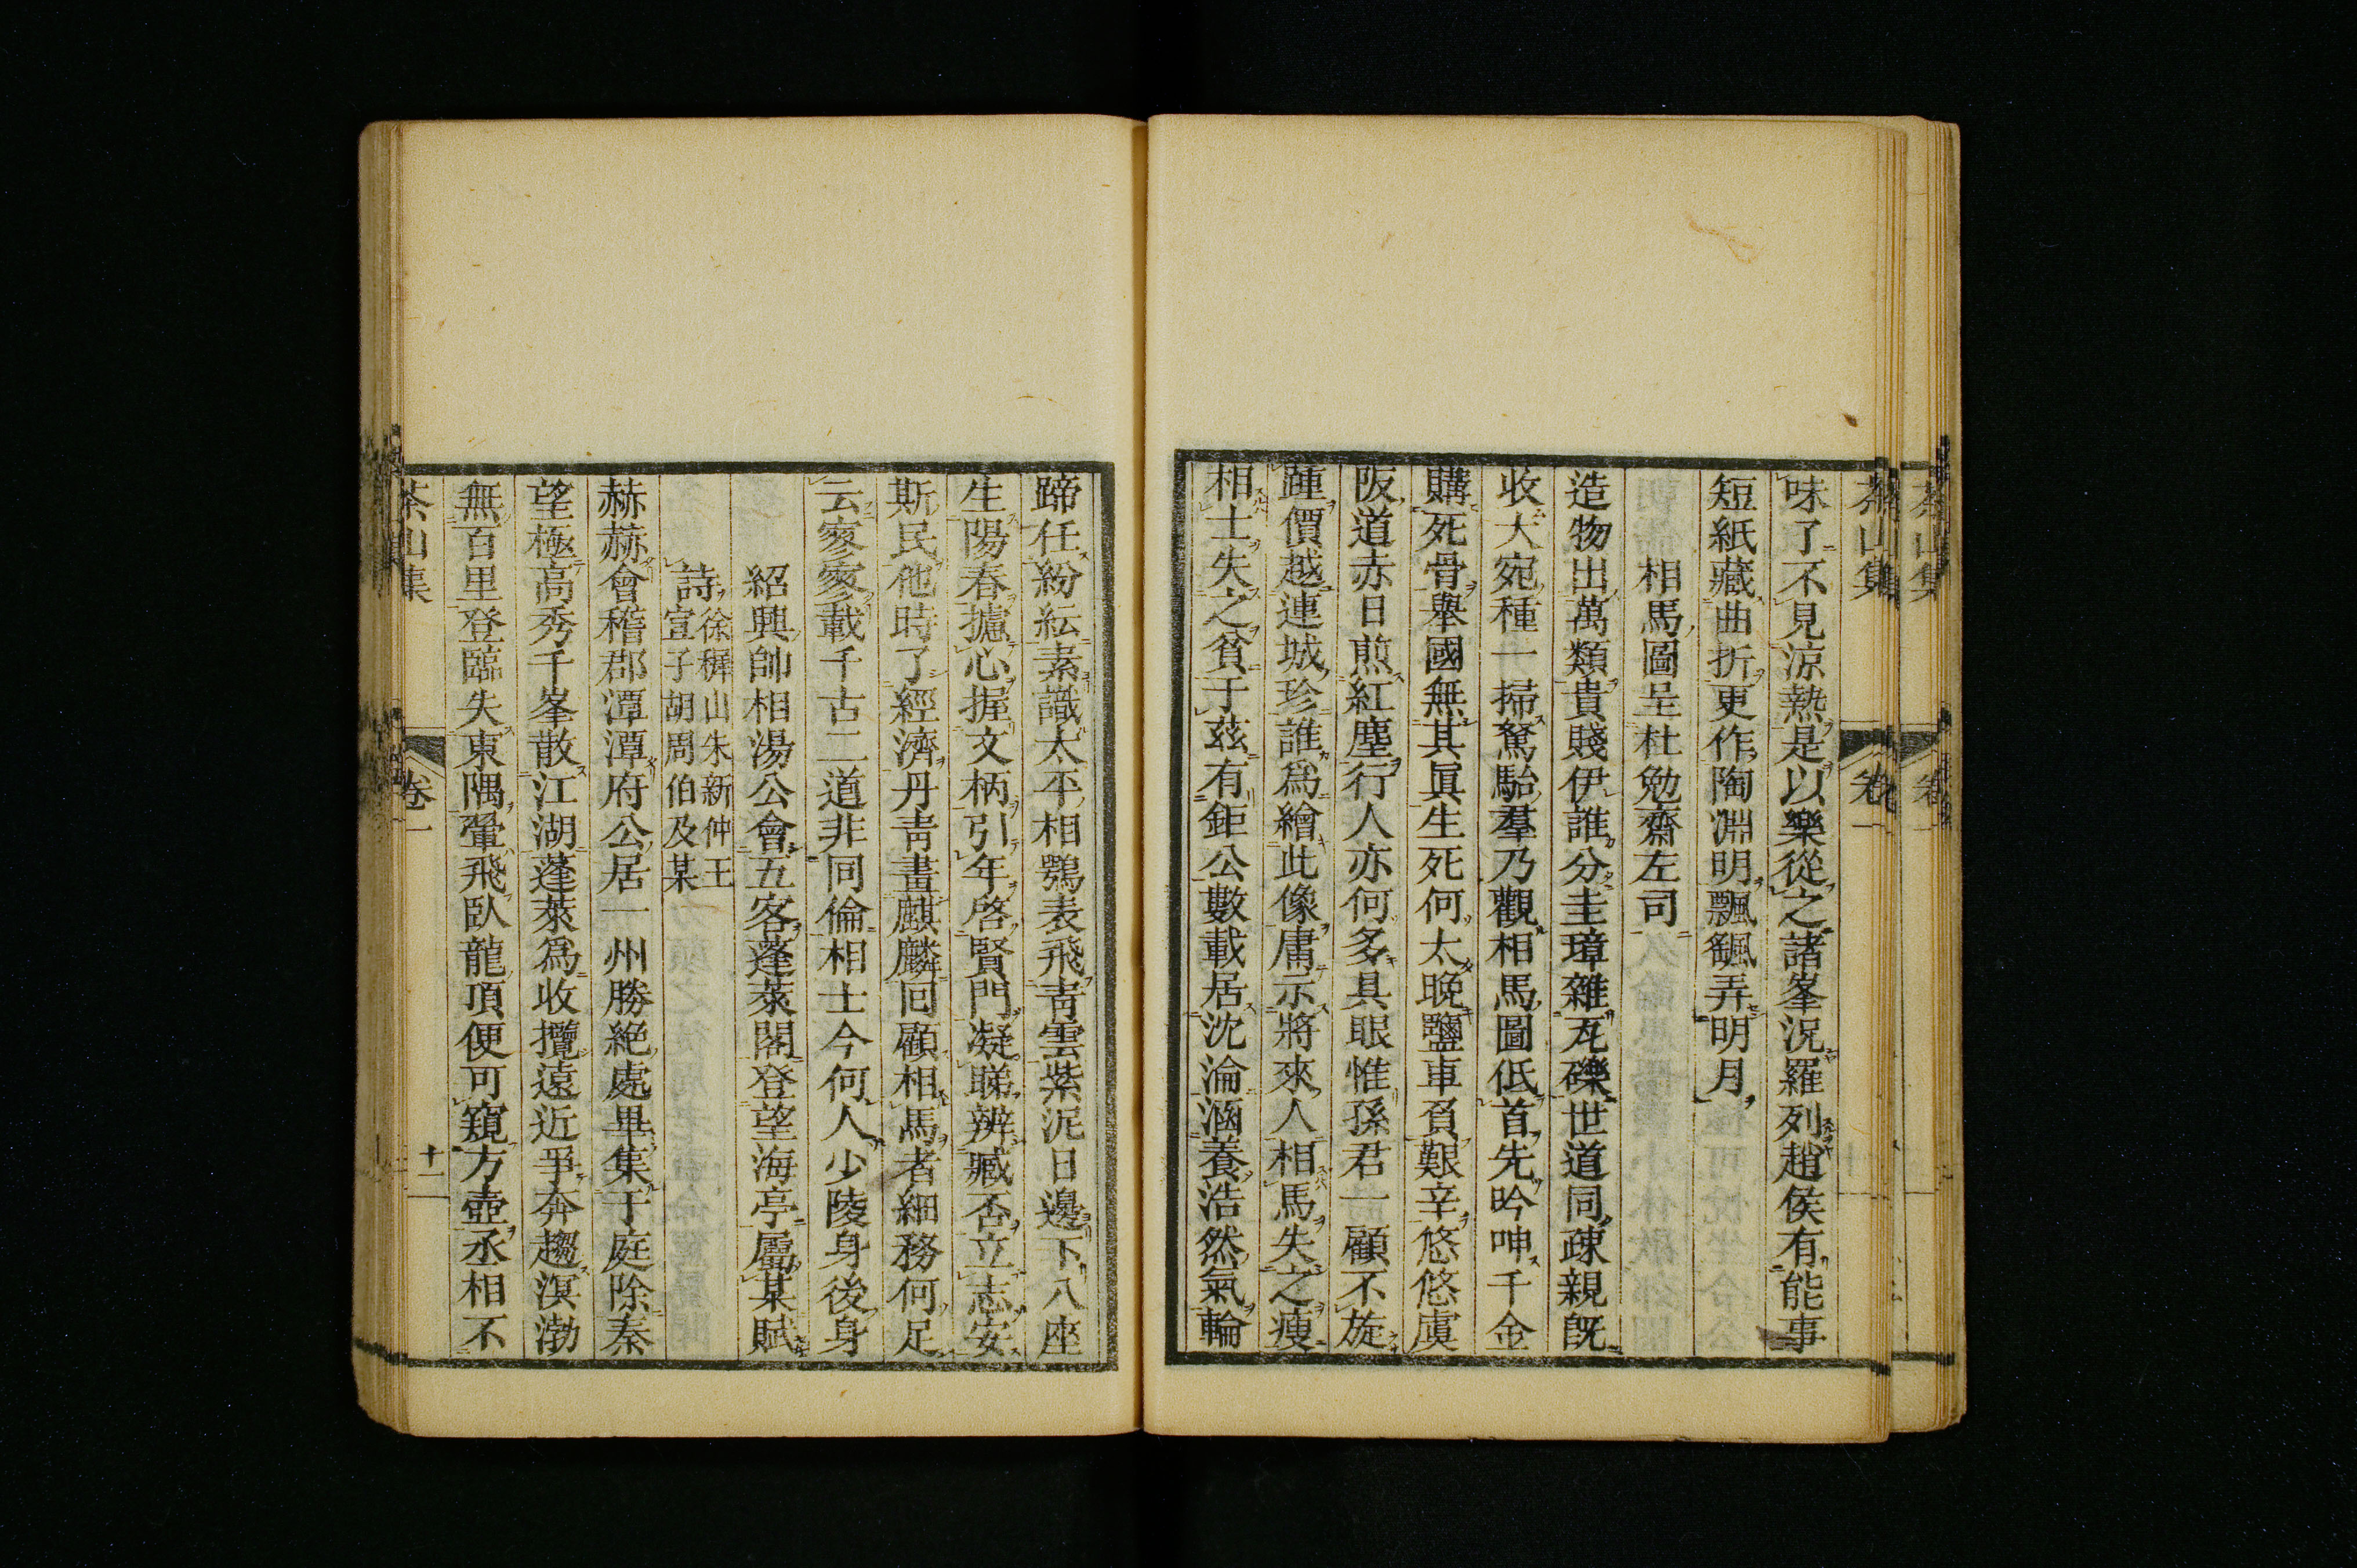 茶山集
卷一
味了不見涼熱是以樂從之諸峯況羅列趙侯有能事
短紙藏曲折更作陶淵明飄颻弄明月
相馬圖呈杜勉齋左司
造物出萬類貴賤伊誰分圭璋雜瓦礫世道同疎親旣
收大宛種一掃駑駘羣乃觀相馬圖低首先吟呻千金
購死骨舉國無其眞生死何太晚鹽車負艱辛悠悠虞
阪道赤日煎紅塵行人亦何多具眼惟孫君一顧不旋
踵價越連城珍誰爲繪此像庸示將來人相馬失之瘦
相士失之貧于茲有鉅公數載居沈淪涵養浩然氣輪
蹄任紛紜素識太平相鶚表飛靑雲紫泥日邊下八座
生陽春攄心握文柄引年啓賢門凝睇辨臧否立志安
斯民他時了經濟丹靑畫麒麟回顧相馬者細務何足
云寥寥載千古二道非同倫相士今何人少陵身後身
紹興帥相湯公會五客蓬萊閣登望海亭屬某賦
詩徐穉山朱新仲王
宣子胡周伯及某
赫赫會稽郡潭潭府公居一州勝絶處畢集于庭除秦
望極高秀千峯散江湖蓬萊爲收攬遠近爭奔趨溟渤
無百里登臨失東隅翬飛臥龍頂便可窺方壺丞相不
茶山集
卷一
十一